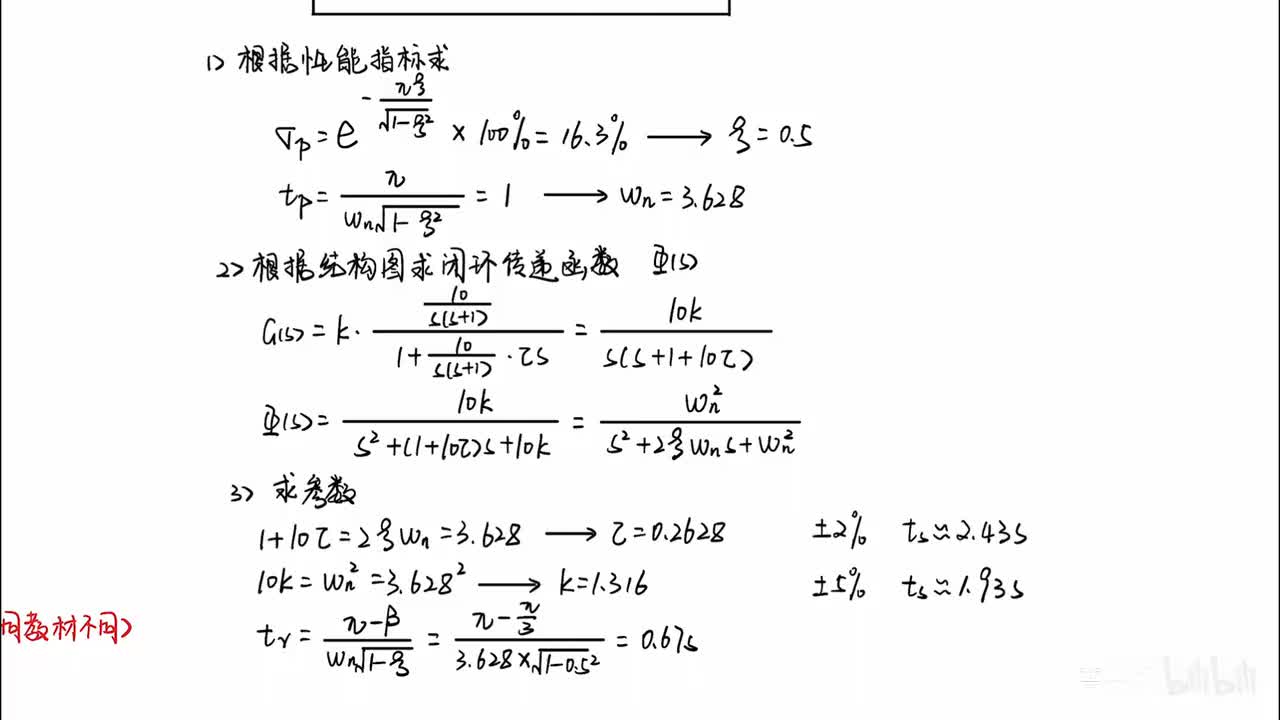 1) 根据性能指标求
σp = e^(-πξ/√(1-ξ²)) × 100% = 16.3% ⟶ ξ = 0.5
tp = π/(ωn√(1-ξ²)) = 1 ⟶ ωn = 3.628
2) 根据结构图求闭环传递函数 Φ(s)
G(s) = k · (10/(s(s+1)))/(1 + 10/(s(s+1)) · τs) = 10k/(s(s+1+10τ))
Φ(s) = 10k/(s²+(1+10τ)s+10k) = ωn²/(s²+2ξωns+ωn²)
3) 求参数
1+10τ = 2ξωn = 3.628 ⟶ τ = 0.2628 ±2% ts ≈ 2.43s
10k = ωn² = 3.628² ⟶ k = 1.316 ±5% ts ≈ 1.93s
同教材不同)
tr = (π-β)/(ωn√(1-ξ)) = (π-π/3)/(3.628×√(1-0.5²)) = 0.67s
bilibili